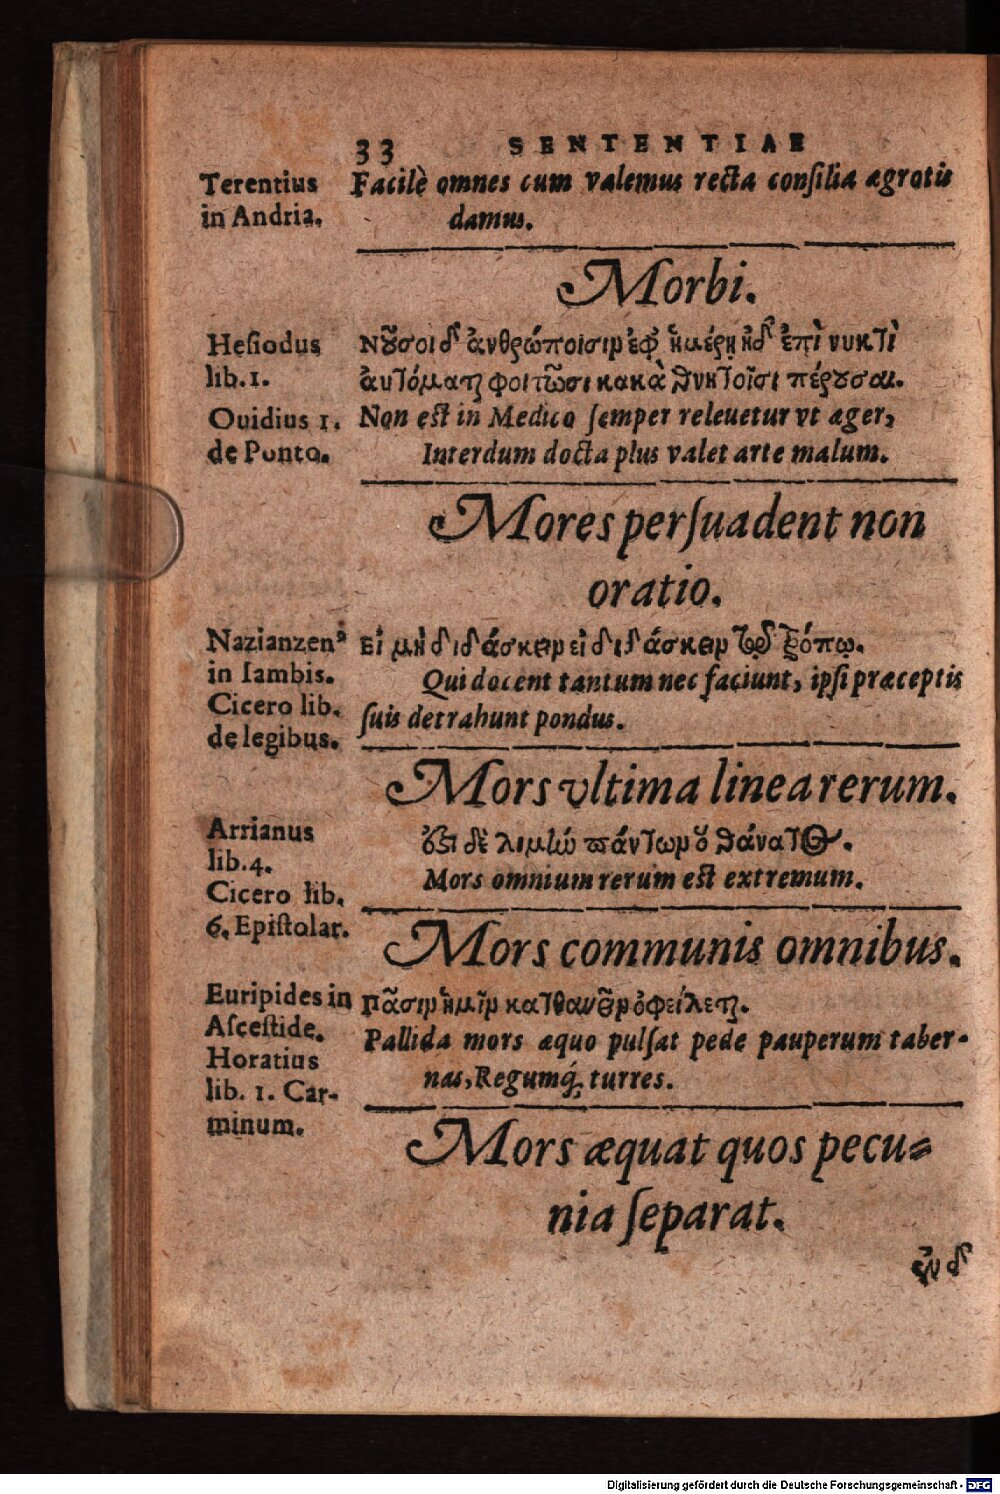 33 SENTENTIAE
Terentius
in Andria.
Facilè omnes cum valemus recta conſilia ægrotis
damus.
Morbi.
Heſiodus
lib. 1.
Νοῦσοι δ' ἀνθρώποισιν ἐφ' ἡμέρῃ ἠδ' ἐπὶ νυκτὶ
ἀυτόμαται φοιτῶσι κακὰ θνητοῖσι φέρουσαι.
Ouidius 1.
de Ponto.
Non est in Medico ſemper releuetur vt æger,
Interdum docta plus valet arte malum.
Mores perſuadent non
oratio.
Nazianzenꝰ
in Iambis.
εἰ μὴ διδάσκειν εἰ διδάσκειν τῷδε τρόπῳ.
Cicero lib.
de legibus.
Qui docent tantum nec faciunt, ipſi præceptis
ſuis detrahunt pondus.
Mors vltima linea rerum.
Arrianus
lib. 4.
ὅτι δὲ λιμὴν πάντων ὁ θάνατος.
Cicero lib.
6. Epiſtolar.
Mors omnium rerum est extremum.
Mors communis omnibus.
Euripides in
Aſceſtide.
πᾶσιν ἡμῖν κατθανεῖν ὀφείλεται.
Horatius
lib. 1. Car-
minum.
Pallida mors æquo pulſat pede pauperum taber-
nas, Regumq́; turres.
Mors æquat quos pecu-
nia ſeparat.
ἓν δ'
Digitalisierung gefördert durch die Deutsche Forschungsgemeinschaft - DFG